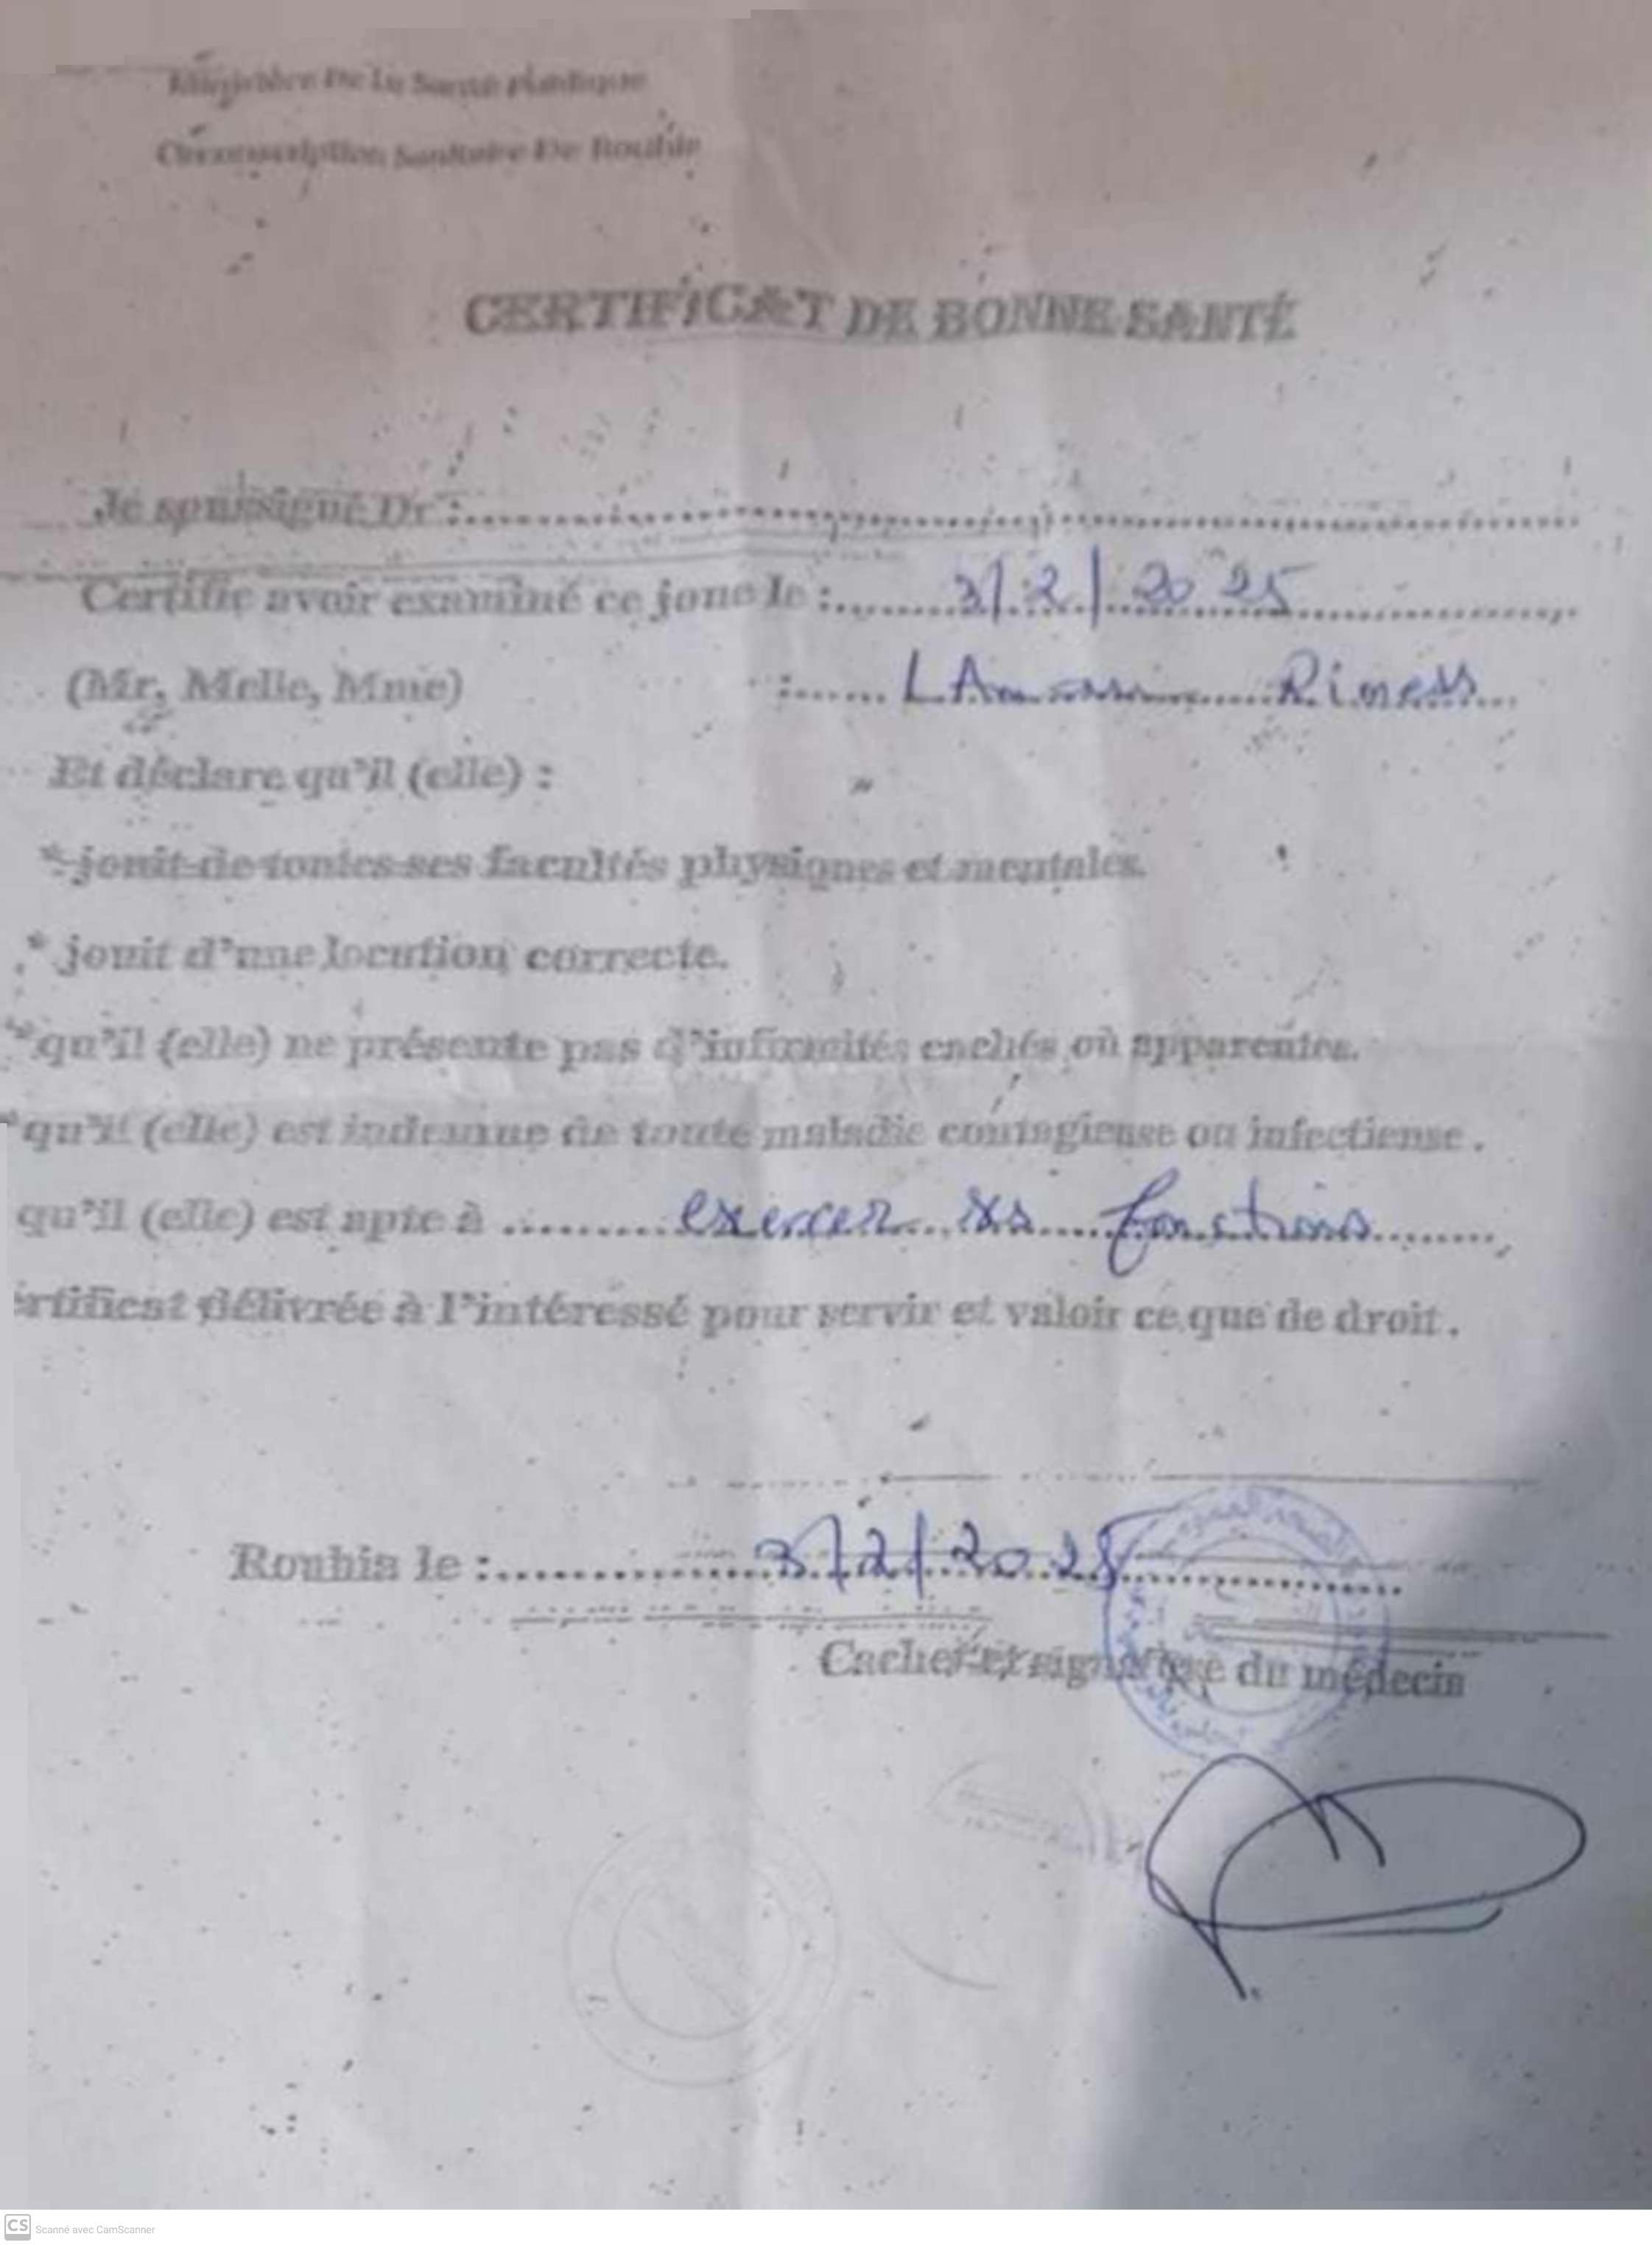 Ministère De La Santé Publique
Circonscription Sanitaire De Rouhia
CERTIFICAT DE BONNE SANTÉ
Je soussigné Dr :
Certifie avoir examiné ce jour le : 3/2/2025
(Mr, Melle, Mme) :
Et déclare qu'il (elle) :
* jouit de toutes ses facultés physiques et mentales.
* jouit d'une locution correcte.
* qu'il (elle) ne présente pas d'infirmités cachés où apparentes.
* qu'il (elle) est indemnne de toute maladie contagieuse ou infectieuse .
qu'il (elle) est apte à exercer ses fonctions
ertificat délivrée à l'intéressé pour servir et valoir ce que de droit .
Rouhia le : 3/2/2025
Cachet et signature du médecin
CS Scanné avec CamScanner